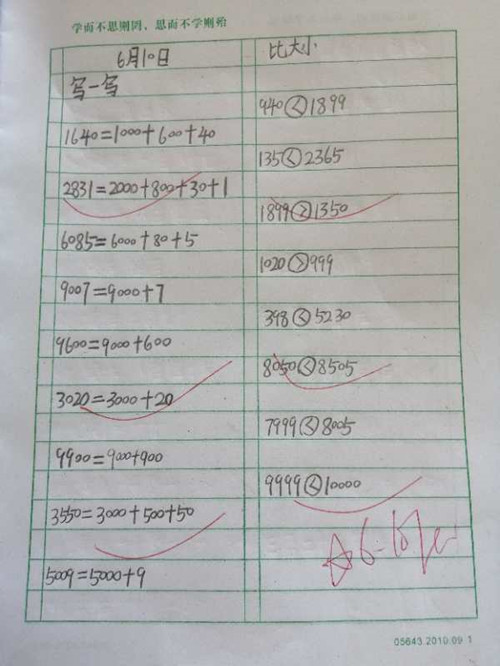 学而不思则罔，思而不学则殆
6月10日
写一写
1640=1000+600+40
2831=2000+800+30+1
6085=6000+80+5
9007=9000+7
9600=9000+600
3020=3000+20
9900=900+900
3550=3000+500+50
5009=5000+9
比大小
940<1899
135<2365
1899>1350
1020>999
398<5230
8050<8505
7999<8005
9999<10000
05643.2010.09.1